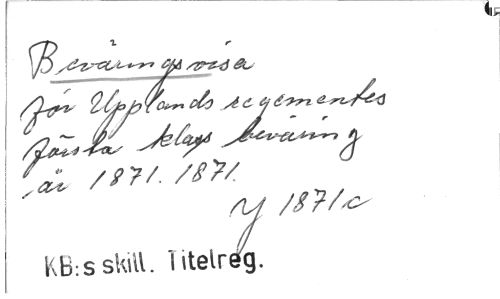 Beväringsvisa
för Upplands regementes
första klass beväring
år 1871. 1871.
Y 1871c
KB:s skill. Titelreg.